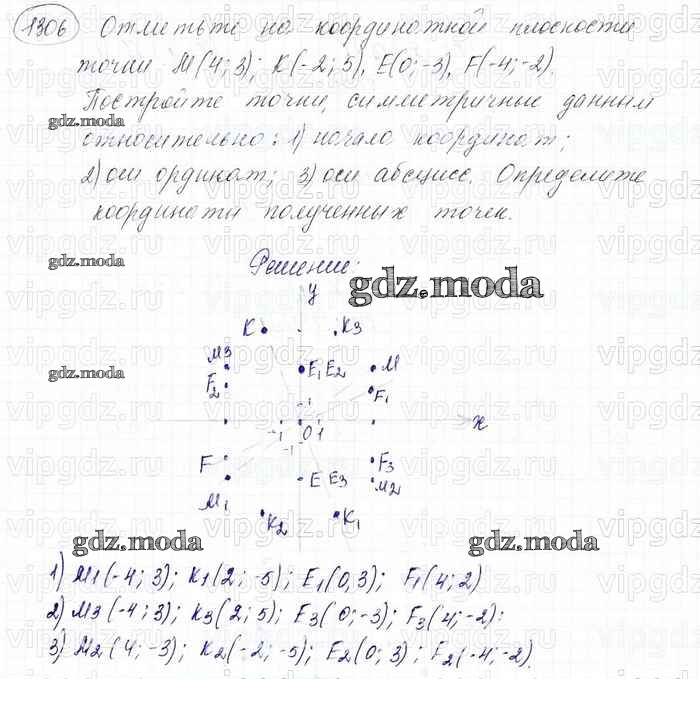 1306 Отметьте на координатной плоскости
точки M(4; 3); K(-2; 5), E(0; -3), F(-4; -2).
Постройте точки, симметричные данным
gdz.moda
относительно: 1) начала координат;
2) оси ординат; 3) оси абсцисс. Определите
координаты полученных точек.
gdz.moda
Решение:
gdz.moda
y
K K3
M3 E1 E2 M
gdz.moda
F2 F1
-1
-1 0 1 x
-1
F F3
E E3 M2
M1
K2 K1
gdz.moda gdz.moda
1) M1(-4; 3); K1(2; -5); E1(0, 3); F1(4; 2)
2) M3(-4; 3); K3(2; 5); E3(0; -3); F3(4; -2):
3) M2(4; -3); K2(-2; -5); E2(0; 3); F2(-4; -2).
vipgdz.ru